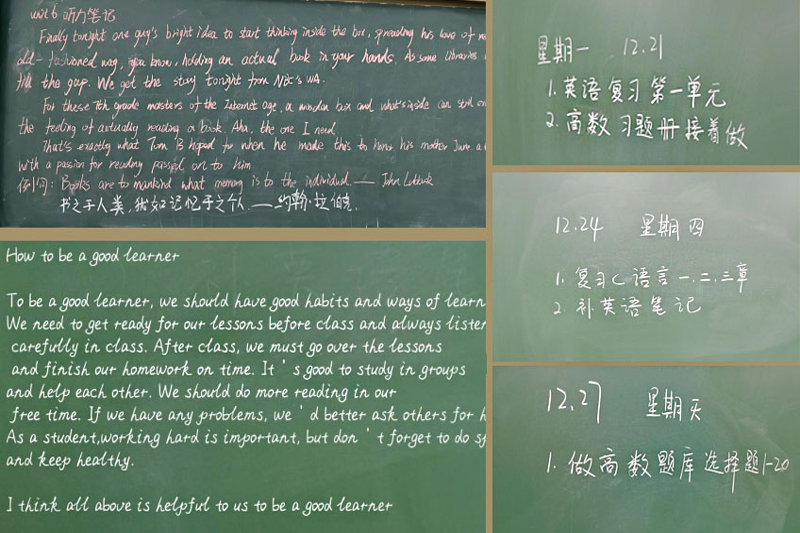 unit 6 听力笔记
Finally tonight one guy's bright idea to start thinking inside the box, spreading his love of
old-fashioned way, you know, holding an actual book in your hands. As some libraries
the gap. We got the story tonight from NBC's
For these 7th grade masters of the Internet age, a wooden box and what's inside can still
the feeling of actually reading a book. Aha, the one I need
That's exactly what Tom hoped for when he made this to honor his mother June, a
with a passion for reading passed on to him
例句: Books are to mankind what memory is to the individual. —— John Lubbock
书之于人类,犹如记忆于之个人 ——约翰·拉伯克
How to be a good learner
To be a good learner, we should have good habits and ways of learn
We need to get ready for our lessons before class and always listen
carefully in class. After class, we must go over the lessons
and finish our homework on time. It's good to study in groups
and help each other. We should do more reading in our
free time. If we have any problems, we'd better ask others for h
As a student,working hard is important, but don't forget to do sp
and keep healthy.
I think all above is helpful to us to be a good learner
星期一 12.21
1. 英语复习第一单元
2. 高数习题册接着做
12.24 星期四
1. 复习C语言一.二.三章
2. 补英语笔记
12.27 星期天
1. 做高数题库选择题1-20